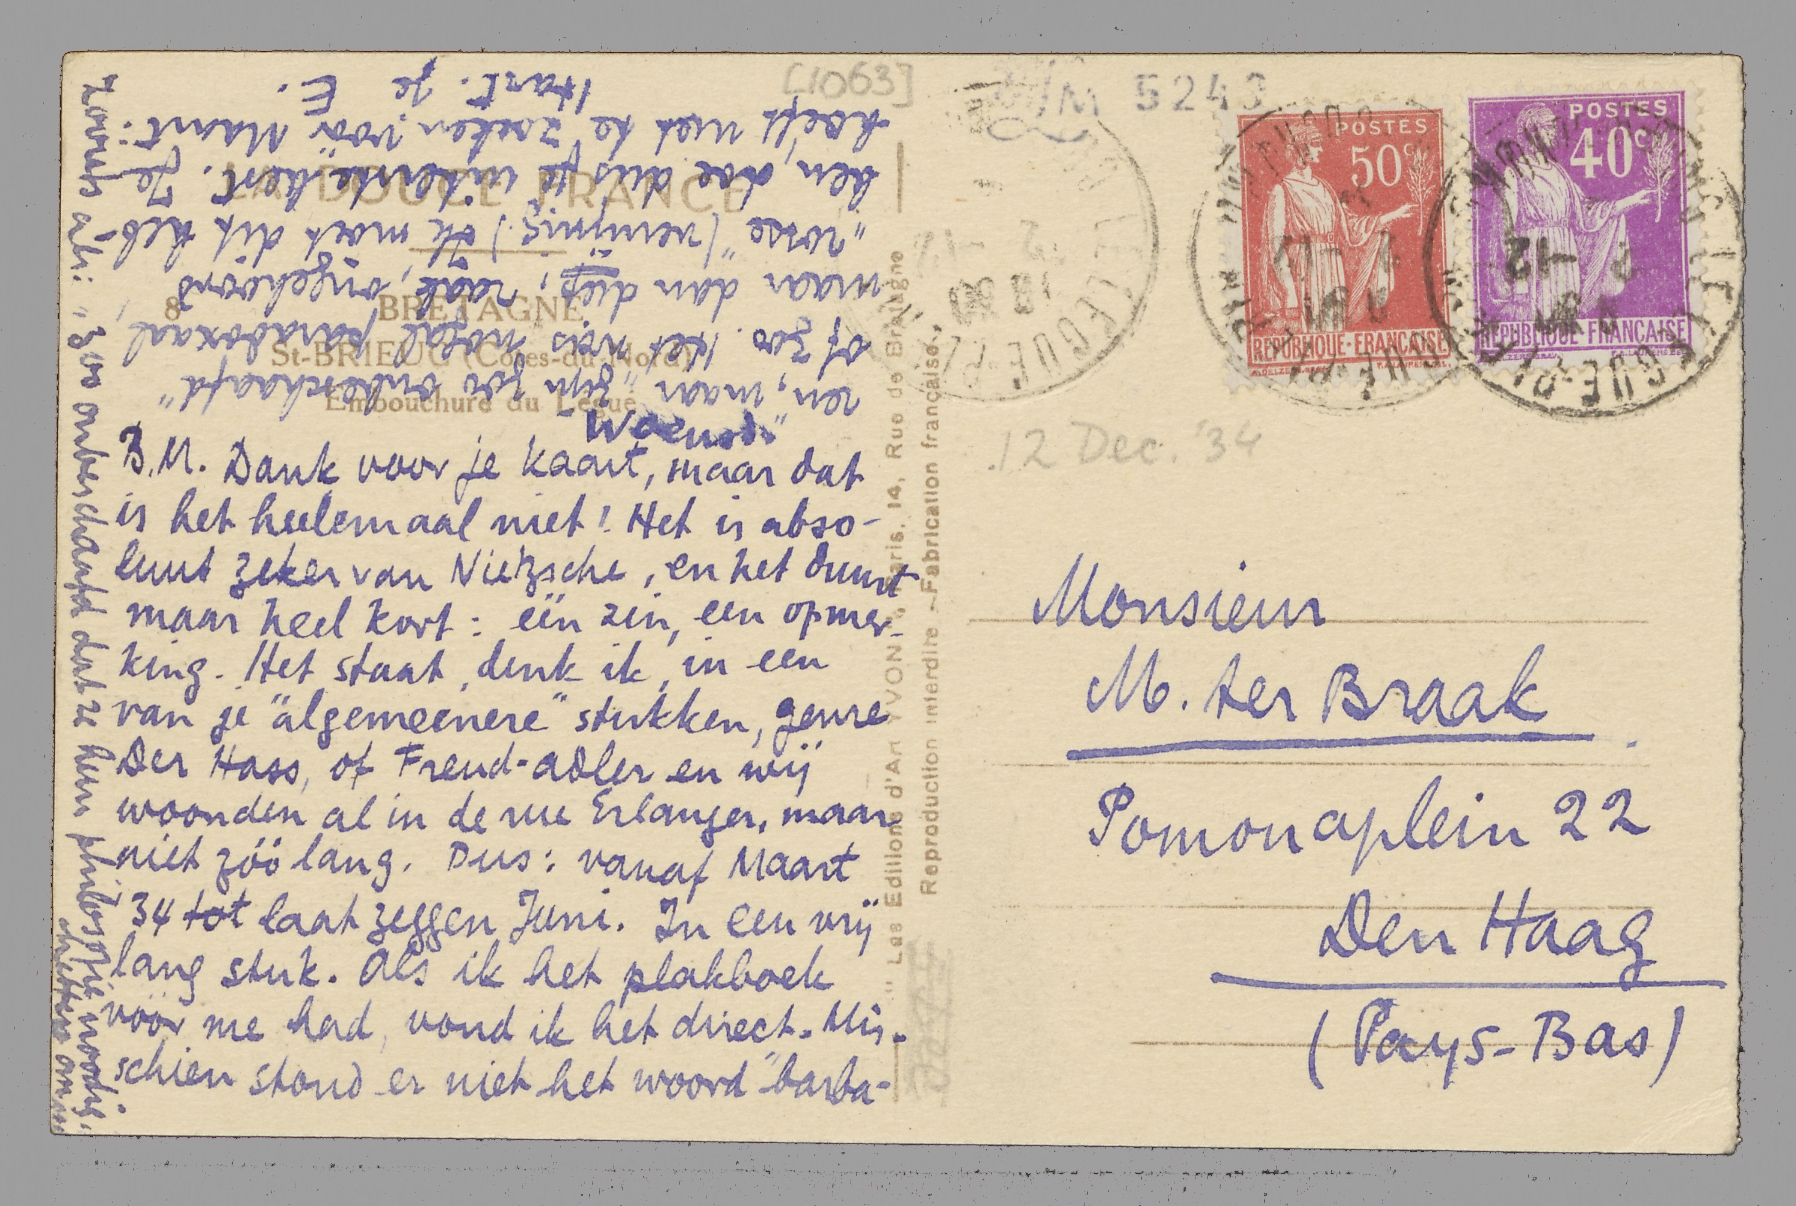 [1063]
M 5243
LA DOUCE FRANCE
8
BRETAGNE
St-BRIEUC (Côtes-du-Nord)
Embouchure du Légué
Woensd.
B.M. Dank voor je kaart, maar dat
is het heelemaal niet! Het is abso-
luut zeker van Nietzsche, en het duurt
maar heel kort: één zin, een opmer-
king. Het staat, denk ik, in een
van je "algemeenere" stukken, genre
Der Hass, of Freud-Adler en wij
woonden al in de rue Erlanger, maar
niet zóó lang. Dus: vanaf Maart
34 tot laat zeggen Juni. In een vrij
lang stuk. Als ik het plakboek
vóór me had, vond ik het direct. Mis-
schien stond er niet het woord "barba-
ren", maar "zijn zoo onbeschaafd"
of zoo. Het was nogal paradoxaal,
maar dan diep, raak, ongehoord
"rosse" (venijnig). Ik moet dit heb-
ben, doe dus je uiterste best. Je
hoeft niet te zoeken vóór Maart.
Hart. je E.
Zooiets als: "zoo onbeschaafd dat ze hun philosophie noodig
hebben om
"Les Editions d'Art YVON", Paris, 14, Rue de Bretagne
Reproduction interdite - Fabrication française.
POSTES
50c
REPUBLIQUE-FRANÇAISE
POSTES
40c
REPUBLIQUE-FRANÇAISE
12 Dec. '34
Monsieur
M. ter Braak
Pomonaplein 22
Den Haag
(Pays-Bas)